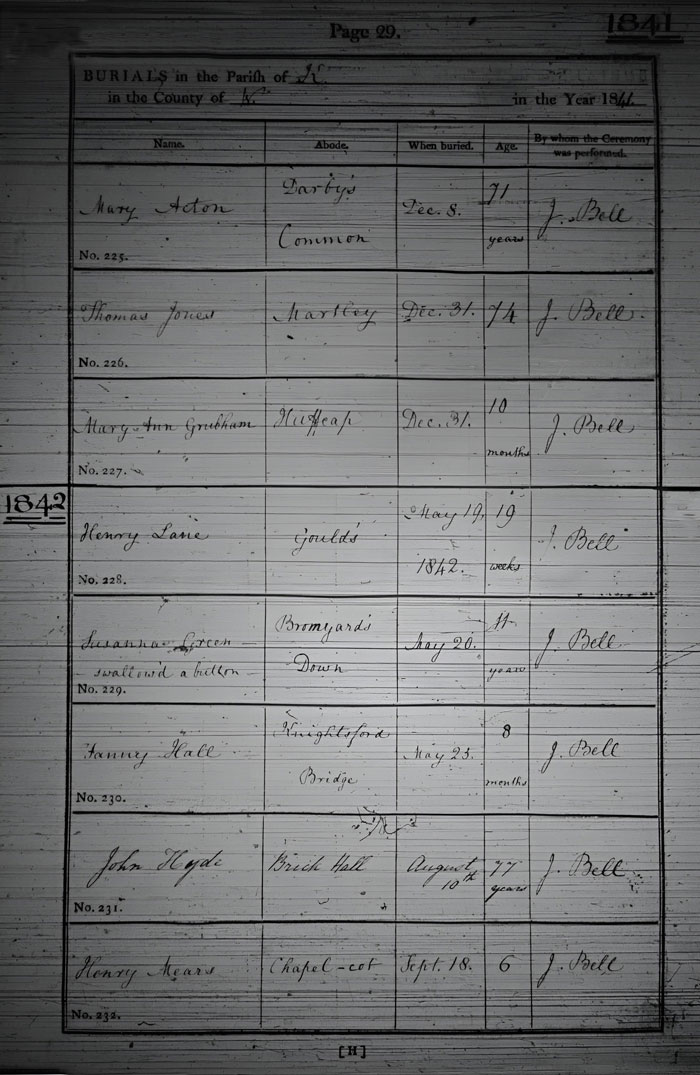 Page 29.
1841
BURIALS in the Parish of K
in the County of W. in the Year 1841.
Name. Abode. When buried. Age. By whom the Ceremony was performed.
Mary Acton Darby's Common Dec. 8. 71 years J. Bell
No. 225.
Thomas Jones Martley Dec. 31. 74 J. Bell.
No. 226.
Mary-Ann Grubham Dec. 31. 10 months J. Bell
No. 227.
1842
Henry Lane Gould's May 19, 1842. 19 weeks J. Bell
No. 228.
Susanna Green Bromyard's Down May 20. years J. Bell
swallow'd a button
No. 229.
Fanny Hall Knightsford Bridge May 25. 8 months J. Bell
No. 230.
John Hyde Brick Hall August 10th 77 years J. Bell
No. 231.
Henry Mears Chapel-cot Sept. 18. 6 J. Bell
No. 232.
[H]